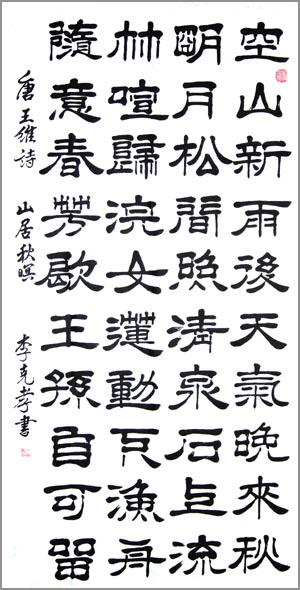 空山新雨後天氣晚來秋
明月松間照清泉石上流
竹喧歸浣女蓮動下漁舟
隨意春芳歇王孫自可留
唐王維詩 山居秋暝 李克孝書